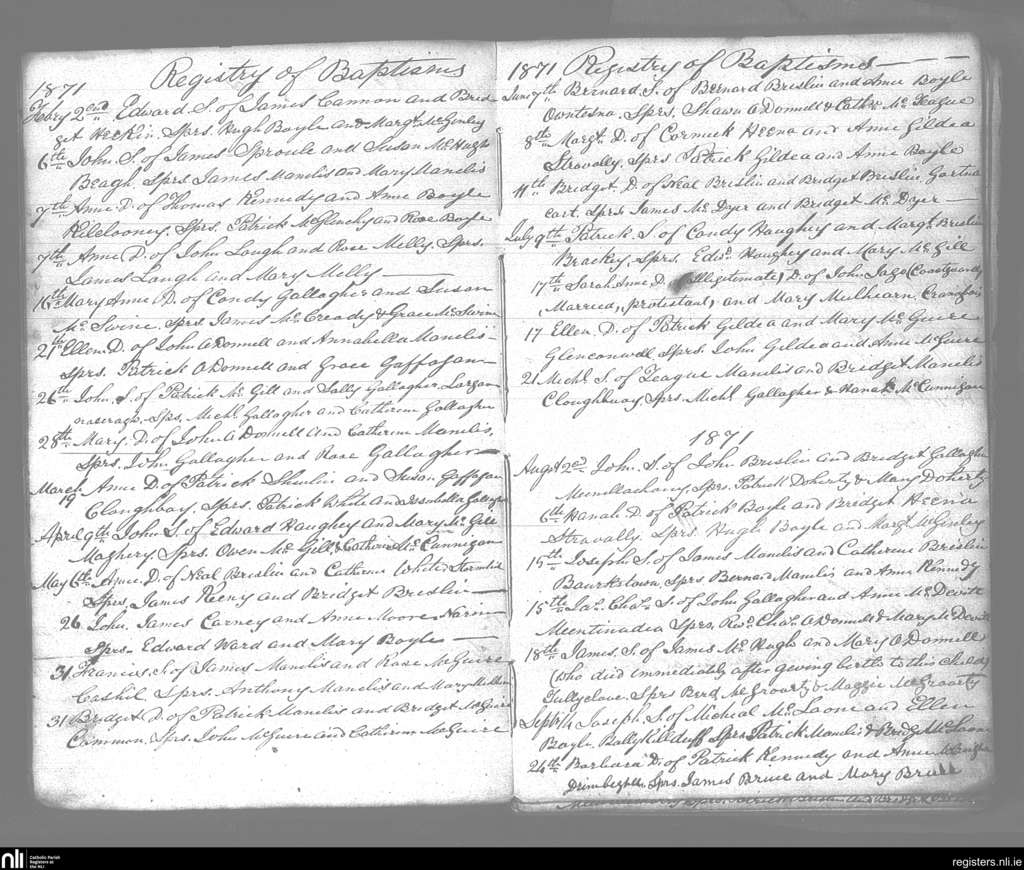 1871 Registry of Baptisms
Feby 2nd Edward S. of James Cannon and Brid
get Herkin. Sprs. Hugh Boyle and Margt. McGinley
6th John S. of James Sproule and Susan McHugh
Beagh. Sprs James Manelis and Mary Manelis
7th Anne D. of Thomas Kennedy and Anne Boyle
Kilclooney. Sprs. Patrick McGlinchy and Rose Boyle
7th Anne D. of John Lough and Rose Melly. Sprs.
James Laugh and Mary Melly
16th Mary Anne D. of Condy Gallagher and Susan
Mc Swine. Sprs James McCready & Grace McSwine
21st Ellen D. of John O Donnell and Annabella Manelis
Sprs. Patrick O Donnell and Grace Gaffagan
26th John. S. of Patrick Mc Gill and Sally Gallagher.
Sprs. Michl Gallagher and Catherine Gallagher
28th Mary. D. of John O Donnell and Catherine Manelis.
Sprs. John Gallagher and Rose Gallagher
March Anne D. of Patrick and Susan Gaffagan
19 Cloughboy. Sprs. Patrick White and Isabella Gallagher
April 9th John S. of Edward Haughey and Mary Mc Gill
Maghery. Sprs. Owen Mc Gill & Catherine Mc Cannigan
May 6th Anne. D. of Neal Breslin and Catherine White
Sprs. James Keeny and Bridget Breslin
26 John. James Carney and Anne Moore Narin
Sprs. Edward Ward and Mary Boyle
31 Francis. S. of James Manelis and Rose McGuire
Cashel Sprs. Anthony Manelis and Mary
31 Bridget D. of Patrick Manelis and Bridget McGuire
Common. Sprs. John McGuire and Catherine McGuire
1871 Registry of Baptisms
June 7th Bernard. S. of Bernard Breslin and Anne Boyle
Owntesna. Sprs. Shawn O Donnell & Cathe. Mc Teague
8th Margt. D. of Cormick Heena and Anne Gildea
Stravally. Sprs Patrick Gildea and Anne Boyle
11th Bridget. D. of Neal Breslin and Bridget Breslin. Gortna
cart. Sprs James Mc Dyer and Bridget Mc Dyer
July 9th Patrick. S. of Condy Haughey and Margt. Breslin
Brackey. Sprs. Edwd. Haughey and Mary Mc Gill
17th Sarah Anne D. (Illigetimate) D. of John Jago (Coastguard,
Married, protestant) and Mary Mulhearn,
17 Ellen. D. of Patrick Gildea and Mary Mc Guire
Glenconwell Sprs. John Gildea and Anne McGuire
21 Michl. S. of Teague Manelis and Bridget Manelis
Cloughboy. Sprs Michl Gallagher & Hanah McCannigan
1871
Augst 2nd John. S. of John Breslin and Bridget Gallagher
Mewllachony. Sprs. Patrick Doherty & Mary Doherty
6th Hanah. D. of Patrick Boyle and Bridget Heena
Stravally. Sprs. Hugh Boyle and Margt McGinley
15th Joseph. S. of James Manelis and Catherine Breslin
Sprs Bernard Manelis and Anne Kennedy
15th Jas. Chas. S. of John Gallagher and Anne Mc Devitt
Meentinadea Sprs. Revd. Chas. O Donnell & Mary McDevitt
18th James. S. of James Mc Hugh and Mary O Donnell
(who died immediately after geving birth to this child)
Tullyclave. Sprs Bernd McGroarty & Maggie McGroarty
Septr 17th Joseph. S. of Micheal Mc Loone and Ellen
Boyle. Ballykillduff Sprs Patrick Manelis & Bridgt McLoone
24th Barbara D. of Patrick Kennedy and Anne
Drimbeghth Sprs. James Bruce and Mary Bruce
nli
Catholic Parish
Registers at
the NLI
registers.nli.ie